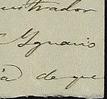 nistrador
Ygnacio
de que